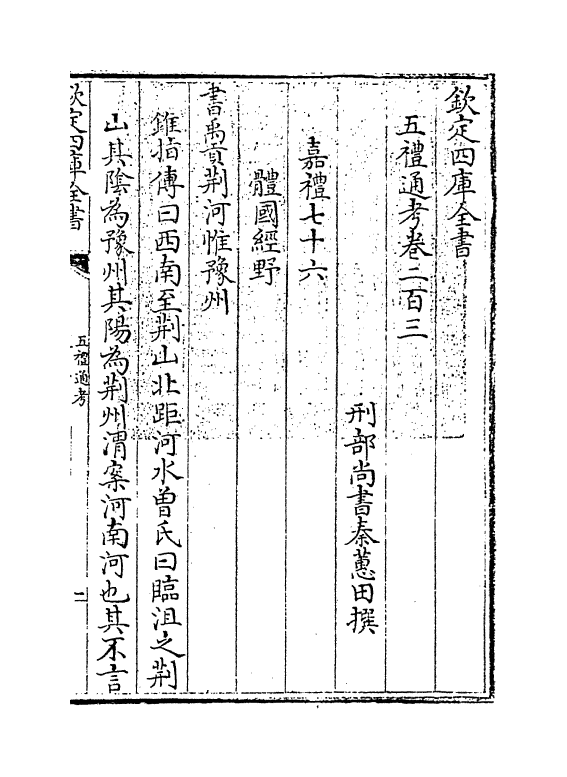 欽定四庫全書
五禮通考卷二百三
刑部尚書秦蕙田撰
嘉禮七十六
體國經野
書禹貢荆河惟豫州
錐指傳曰西南至荆山北距河水曾氏曰臨沮之荆
山其陰為豫州其陽為荆州渭案河南河也其不言
欽定四庫全書
五禮通考